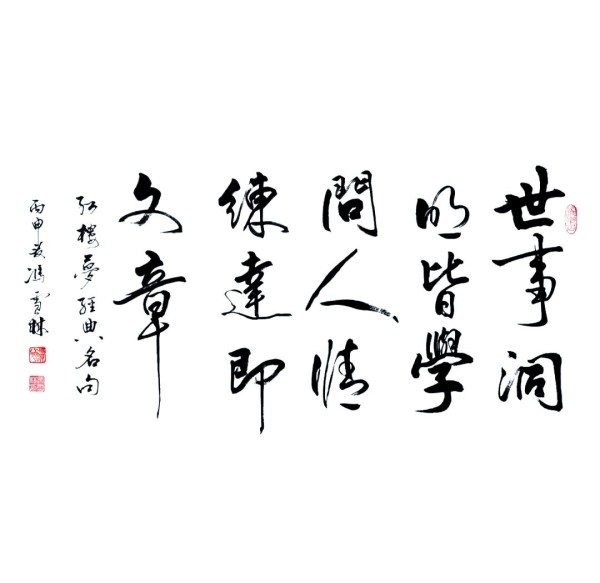 世事洞
明皆學
問人情
練達即
文章
紅樓夢經典名句
丙申馮雪林